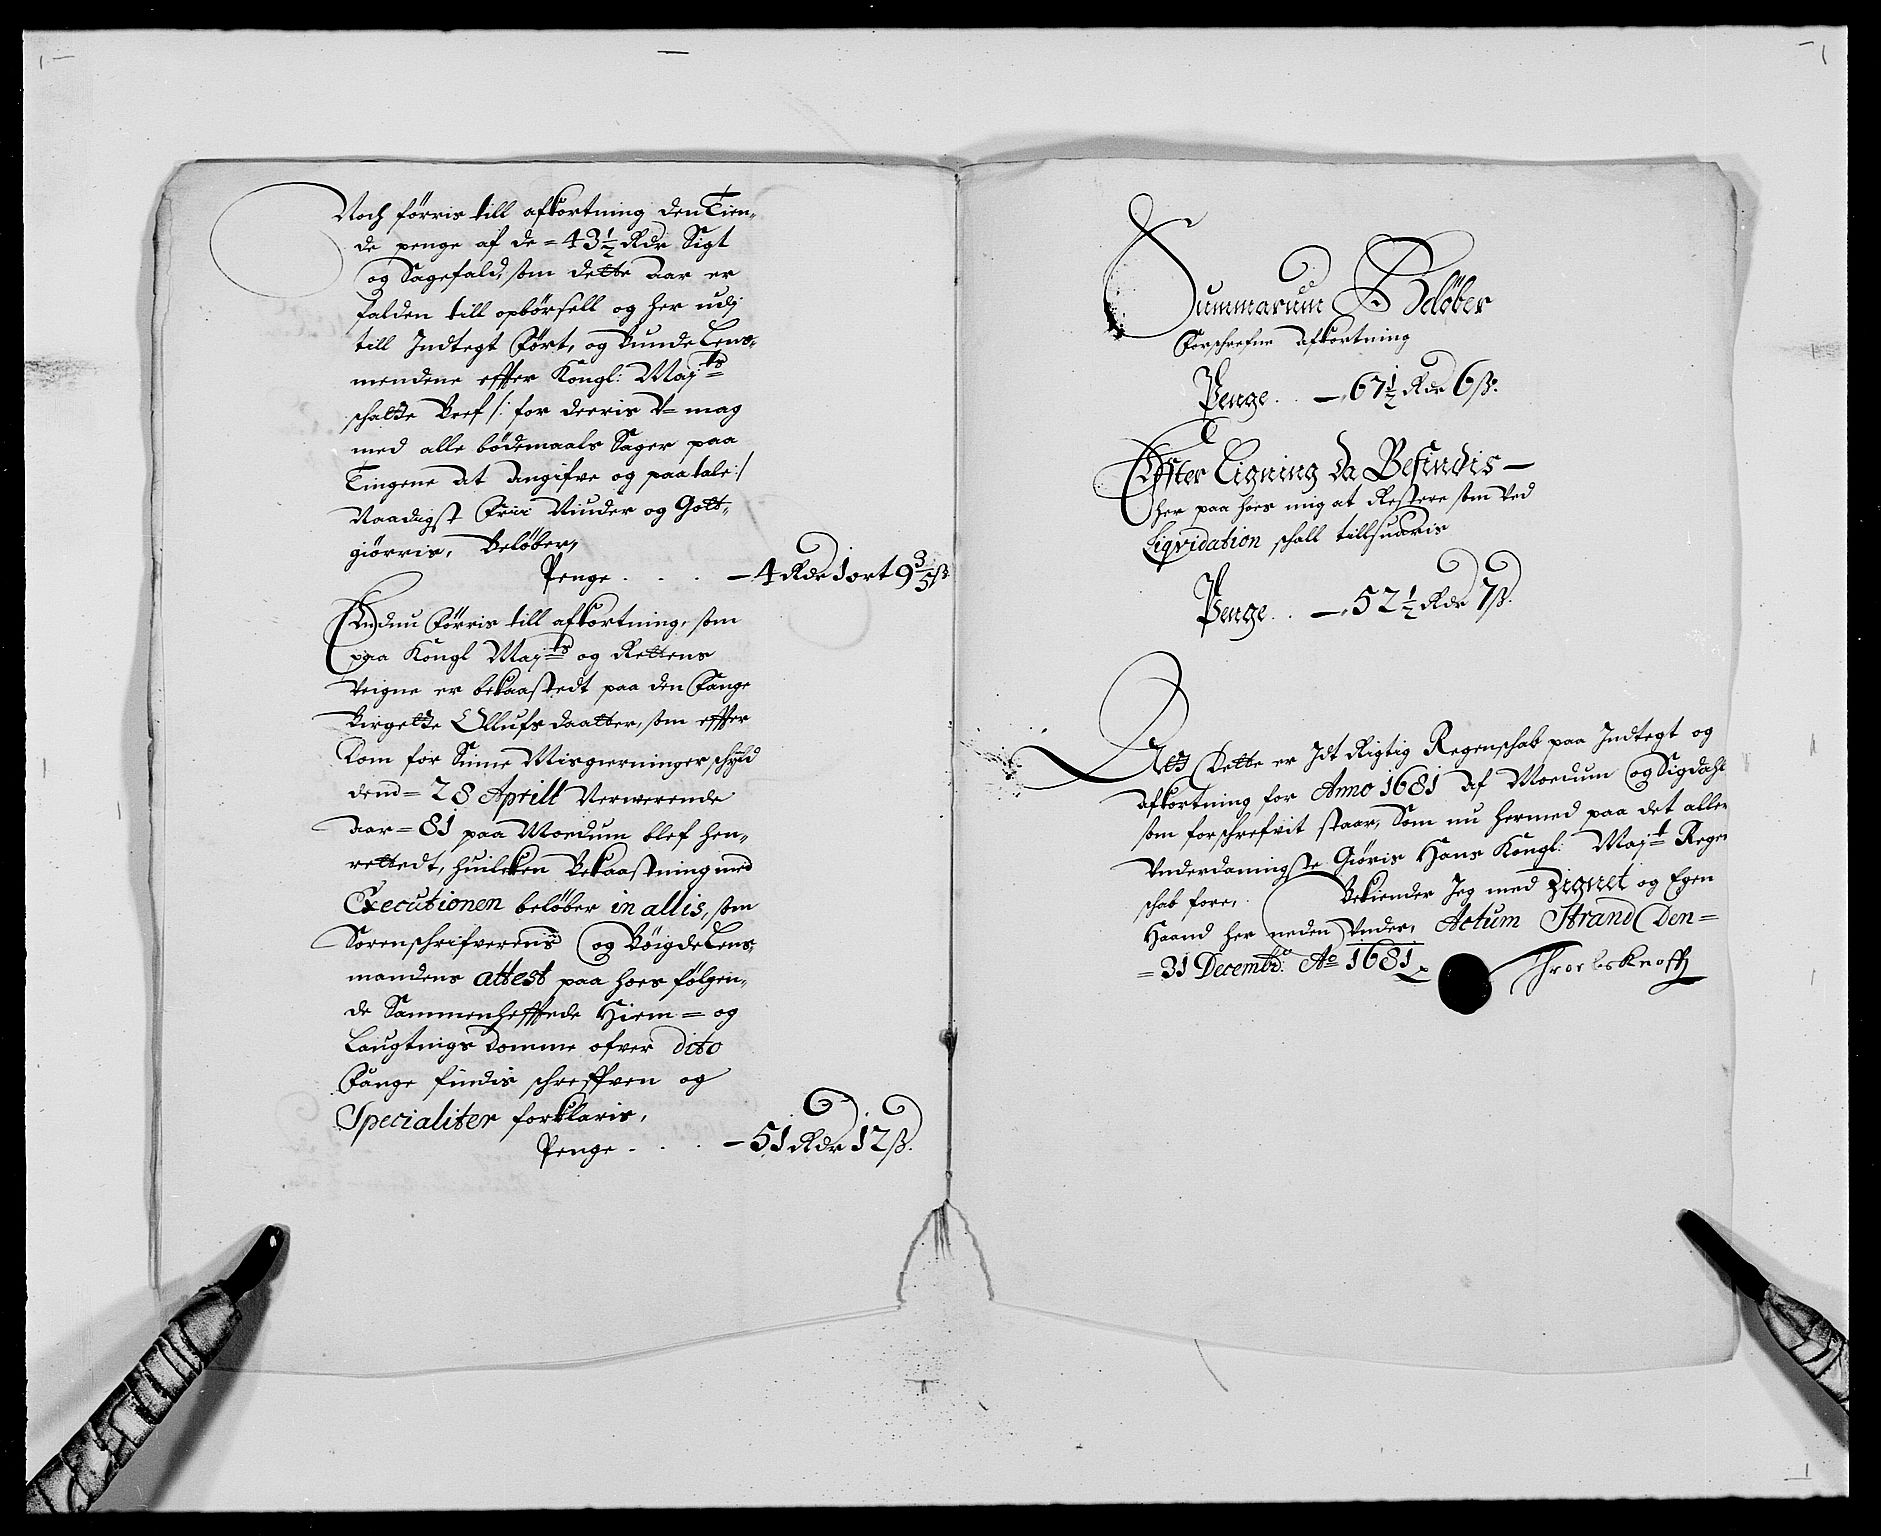 Noch förris till afkortning den Tien-
de penge af de = 43½ Rdr Sigt
og Sagefald, som dette aar er
falden till opbörsell og her udj
till Indtegt Fört, og bunde Lens-
mendene effter Kongl: Maj:ts
schatte bref /: for deeris V= mag
med alle bödemaals Sager paa
Tingene at angifve og paatale :/
Naadigst Frii Niuder og Gott-
giörris, Belöber,
Penge . . . . — 4 Rdr 1 ort 9 3/5 ß.
Endnu Förris till afkortning, som
paa Kongl Maj:ts og Rettens
Veigne er bekaastedt paa den Fange
Birgette Ollufs daatter, som effter
Dom for Sinne Misgierninger schyld
dend = 28 Aprill Nerwerende
Aar = 81 paa Modum blef hen-
rettedt, huilcken Bekaastning med
Executionen belöber in allis, som
Sorenschrifverens og Böigde Lens-
mandens attest paa hoes fölgen-
de Sammenhefftede Hiem = og
Laugtings Domme ofver dito
Fange findis schreffven og
Specialiter forklaris,
Penge . . . . — 51 Rdr 12 ß.
Summarum Belöber
Forschrefne Afkortning
Penge . . — 67½ Rdr 6 ß.
Effter Ligning da Befindis —
her paa hoes mig at Restere som ved
Liqvidation schall tillsuaris
Penge . . — 52½ Rdr 7 ß.
Att Dette er Idt Rigtig Regenschab paa Indtegt og
afkortning for Anno 1681 af Modum og Sigdahl
som forschrefvit staar, Som nu hermed paa det aller
Vnderdanigste Giöris Hans Kongl: Maj:t Regen
schab fore, Bekiender Jeg med Zignet og Egen
Haand her neden Vnder, Actum Strand Den =
= 31 Decemb: Ao 1681
Throels Knoff